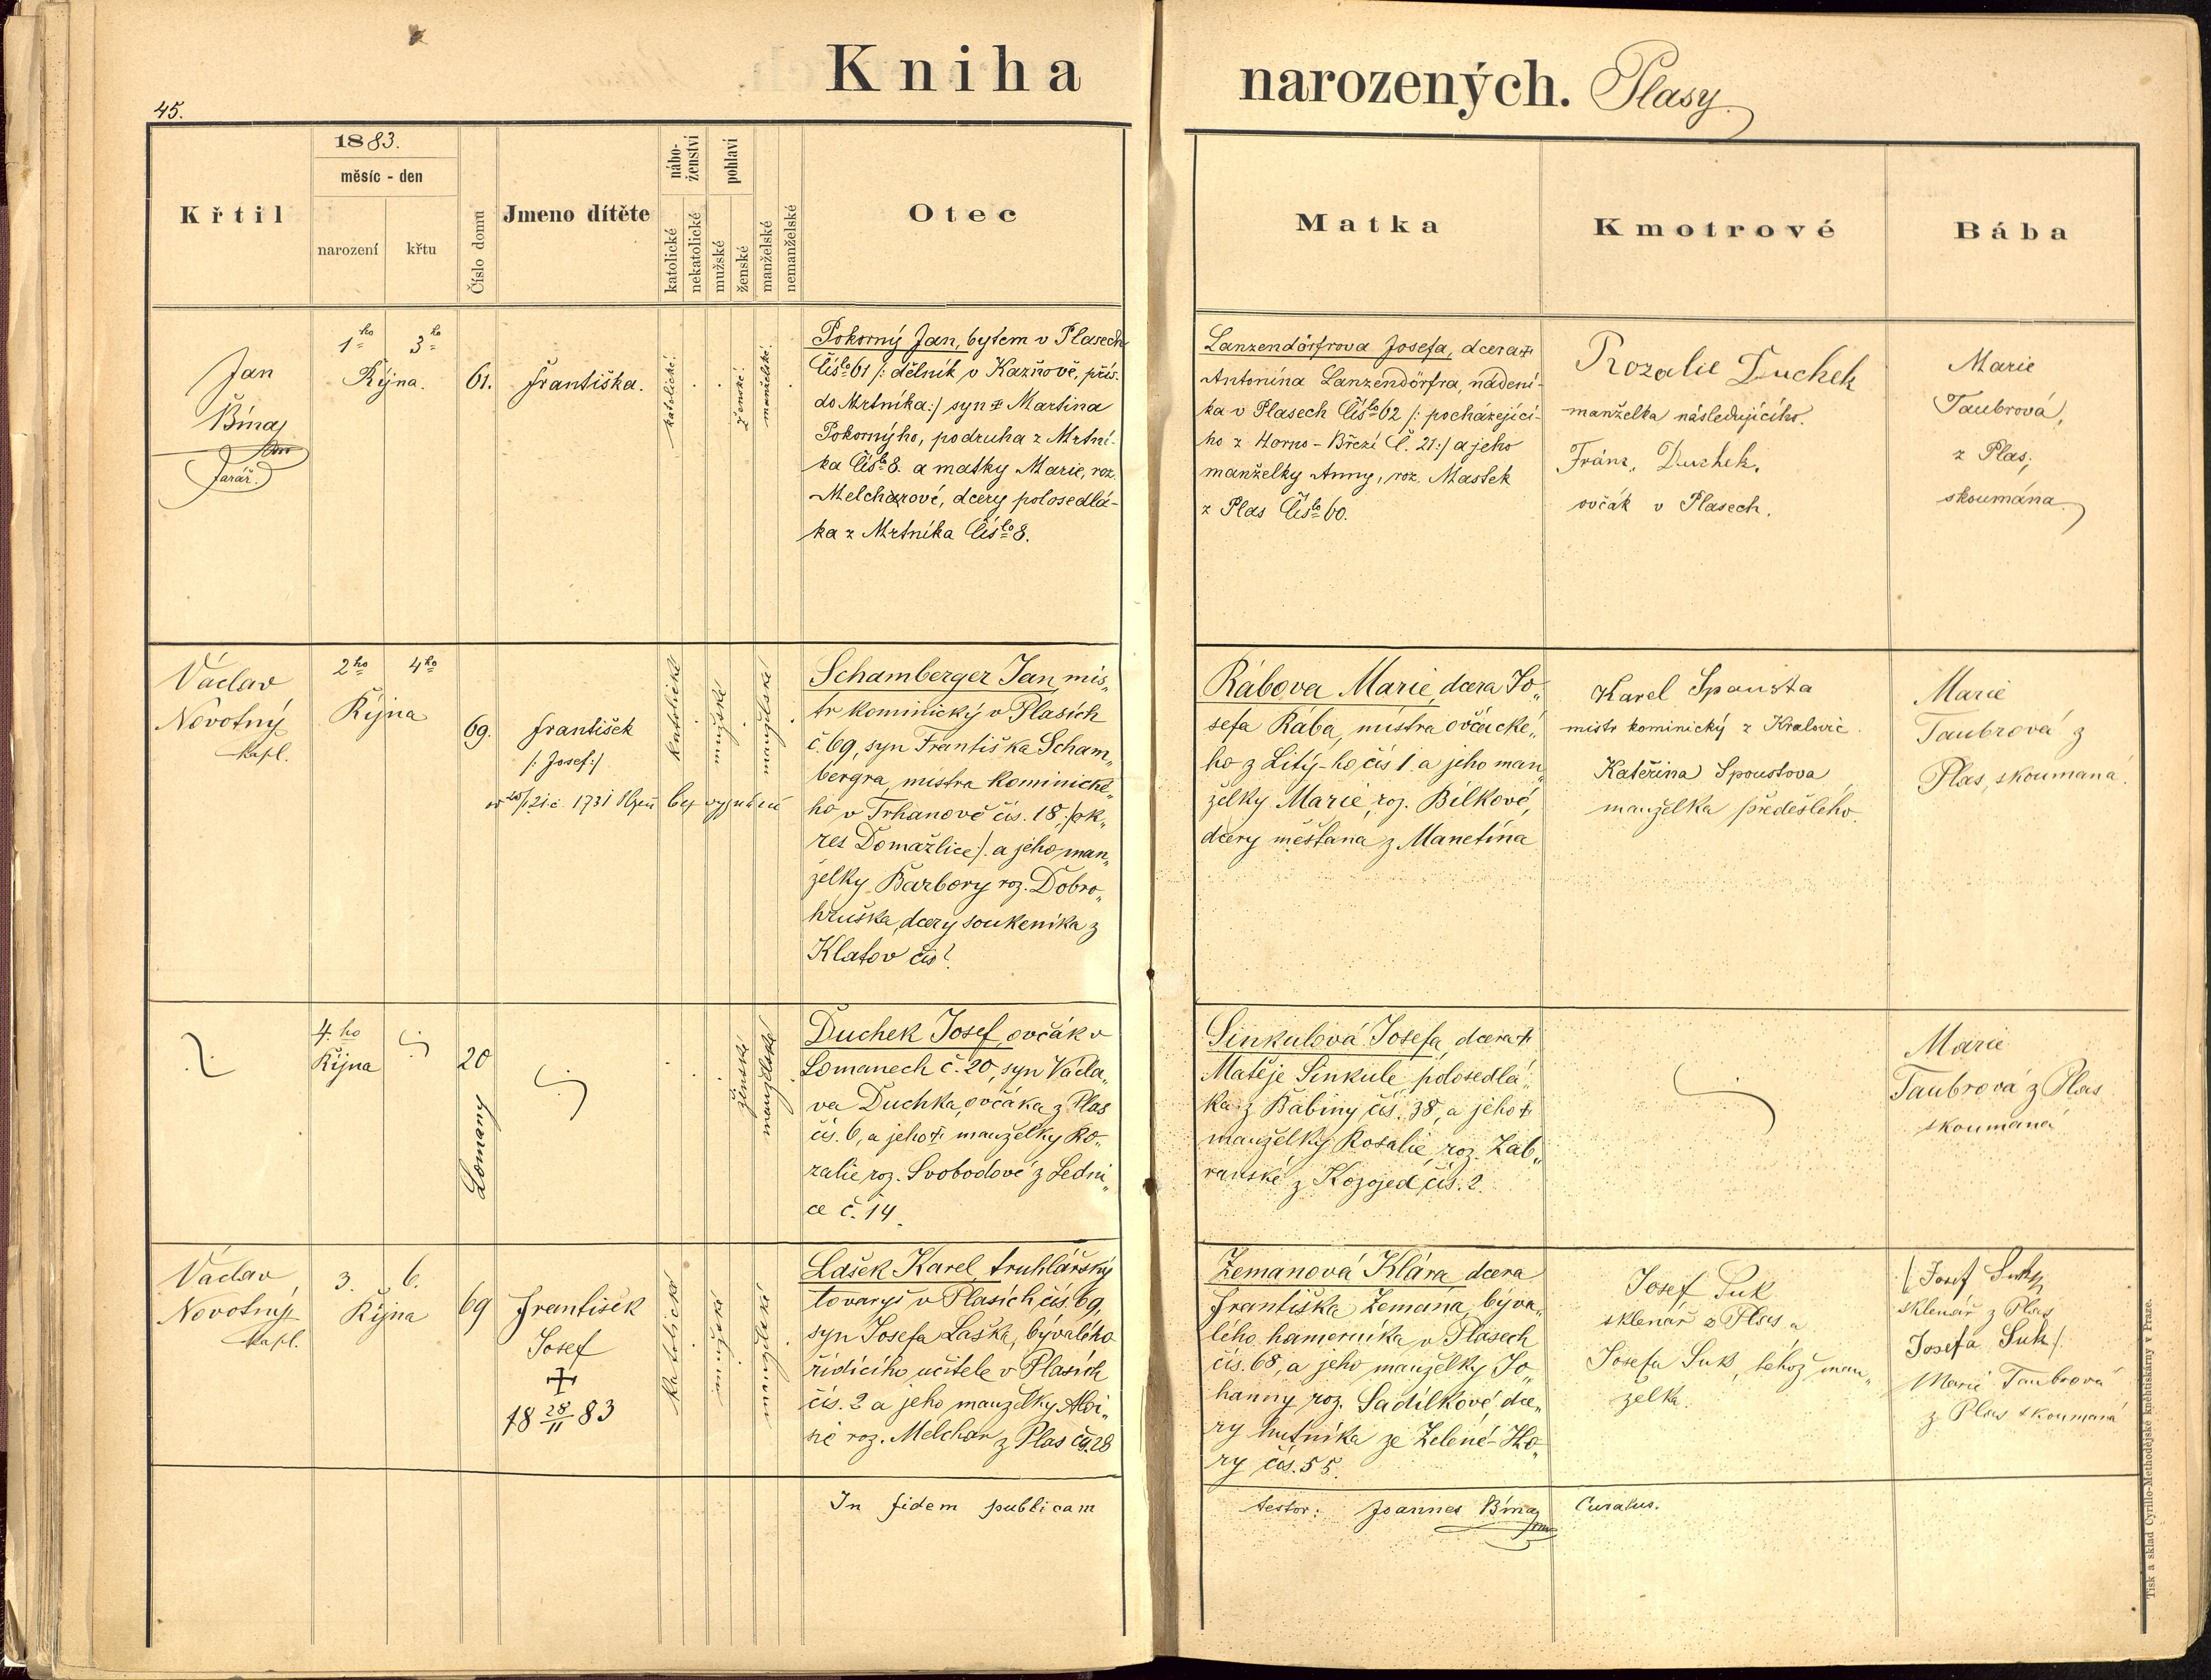 Kniha narozených. Plasy
45.
Křtil
1883.
měsíc - den
narození
křtu
Číslo domu
Jmeno dítěte
nábo-
ženství
katolické
nekatolické
pohlaví
mužské
ženské
manželské
nemanželské
Otec
Matka
Kmotrové
Bába
Jan
Bínaj
farář.
1ho 3ho
Října.
61.
Františka.
katolické.
ženské.
manželské.
Pokorný Jan, bytem v Plasech
Číslo 61 /: dělník v Kaznově, přís.
do Mrtníka:/ syn † Martina
Pokornýho, podruha z Mrtní-
ka Číslo 8. a matky Marie, roz.
Melcharové, dcery polosedlá-
ka z Mrtníka Číslo 8.
Lanzendörfrova Josefa, dcera †
Antonína Lanzendörfra, nádení-
ka v Plasech Číslo 62 /: pocházející-
ho z Horno-Březí č. 21:/ a jeho
manželky Anny, roz. Mastek
z Plas Číslo 60.
Rozalie Duchek
manželka následujícího.
Franz. Duchek.
ovčák v Plasech.
Marie
Taubrová,
z Plas,
skoumána
Václav
Novotný
kapl.
2ho 4ho
Října
69.
František
/: Josef:/
katolické
mužské
manželské
Schamberger Jan, mis„
tr kominický v Plasích
č. 69, syn Františka Scham„
bergra, mistra kominické„
ho v Trhanově čís. 18, /:ok„
res Domažlice/. a jeho man„
želky Barbory roz. Dobro„
hruška, dcery soukeníka z
Klatov čís?
Rábova Marie, dcera Jo„
sefa Rába, mistra ovčácké„
ho z Lité-ho čís 1. a jeho man„
želky Marie, roz. Bílkové,
dcery měšťana z Manetína
Karel Spousta
mistr kominický z Kralovic.
Kateřina Spoustova
manželka předešlého.
Marie
Taubrová z
Plas, skoumaná.
4. ho
Října
20
Lomany
ženské
manželské
Duchek Josef, ovčák v
Lomanech č. 20, syn Václa„
va Duchka, ovčáka z Plas
čís. 6, a jeho † manželky Ro„
zalie roz. Svobodové z Ledni„
ce č. 14.
Sinkulová Josefa, dcera †
Matěje Sinkule, polosedlá„
ka z Babiny čís. 38, a jeho †
manželky Rosalie, roz. Záb„
ranské z Kozojed čís. 2.
Marie
Taubrová z Plas
skoumaná
Václav
Novotný
kapl.
3. 6.
Října
69
František
Josef
†
18 28/11 83
katolické
mužské
manželské
Lašek Karel, truhlářský
tovaryš v Plasích, čís. 69,
syn Josefa Laška, bývalého
řídícího učitele v Plasích
čís. 2 a jeho manželky Aloi„
sie roz. Melchar z Plas čís. 28
Zemanová Klára, dcera
Františka Zemana, býva„
lého hamerníka v Plasech
čís. 68, a jeho manželky Jo„
hanny roz. Sadílkové, dce„
ry hutníka ze Zelené-Ho„
ry čís. 55.
Josef Suk
sklenář z Plas a
Josefa Suk, téhož man„
želka.
/ Josef Suk,
sklenář z Plas
Josefa Suk /
Marie Taubrová
z Plas skoumaná
In fidem publicam testor: Joannes Bínaj Curatus.
Tisk a sklad Cyrillo-Methodějské knihtiskárny v Praze.